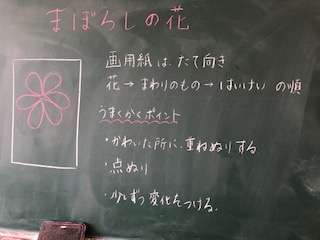 まぼろしの花
画用紙は、たて向き
花→まわりのもの→はいけい の順
うまくかくポイント
・かわいた所に、重ねぬりする
・点ぬり
・少しずつ変化をつける。